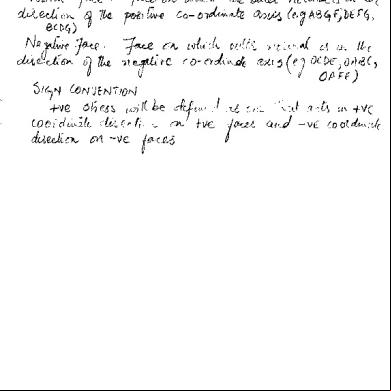 direction of the positive co-ordinate axis (e.g ABGF, DEFG,
BCDG)
Negative Face. Face on which outer normal is in the
direction of the negative co-ordinate axis (eg OCDE, OABC,
OAFE)
SIGN CONVENTION
+ve stress will be defined as one that acts in +ve
coordinate direction on +ve faces and -ve coordinate
direction on -ve faces